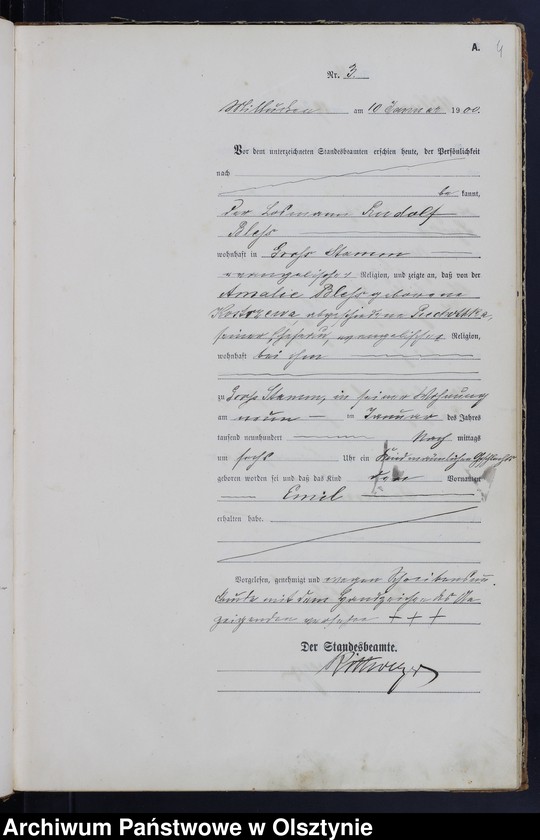 A. 4
Nr. 3.
am 10 Januar 1900.
Vor dem unterzeichneten Standesbeamten erschien heute, der Persönlichkeit
nach
be kannt,
der Losmann Rudolf
Bless
wohnhaft in Gross Stamm
evangelischer Religion, und zeigte an, daß von der
Amalie Bless geborene
Kostrzewa, abgeschiedene
seiner Ehefrau, evangelischer Religion,
wohnhaft bei ihm
zu Gross Stamm, in seiner Wohnung
am neun ten Januar des Jahres
tausend neunhundert Nach mittags
um sechs Uhr ein Kind männlichen Geschlechts
geboren worden sei und daß das Kind den Vornamen
Emil
erhalten habe.
Vorgelesen, genehmigt und wegen Schreibensun-
kunde mit dem Handzeichen des An-
zeigenden versehen + + +
Der Standesbeamte.
Archiwum Państwowe w Olsztynie